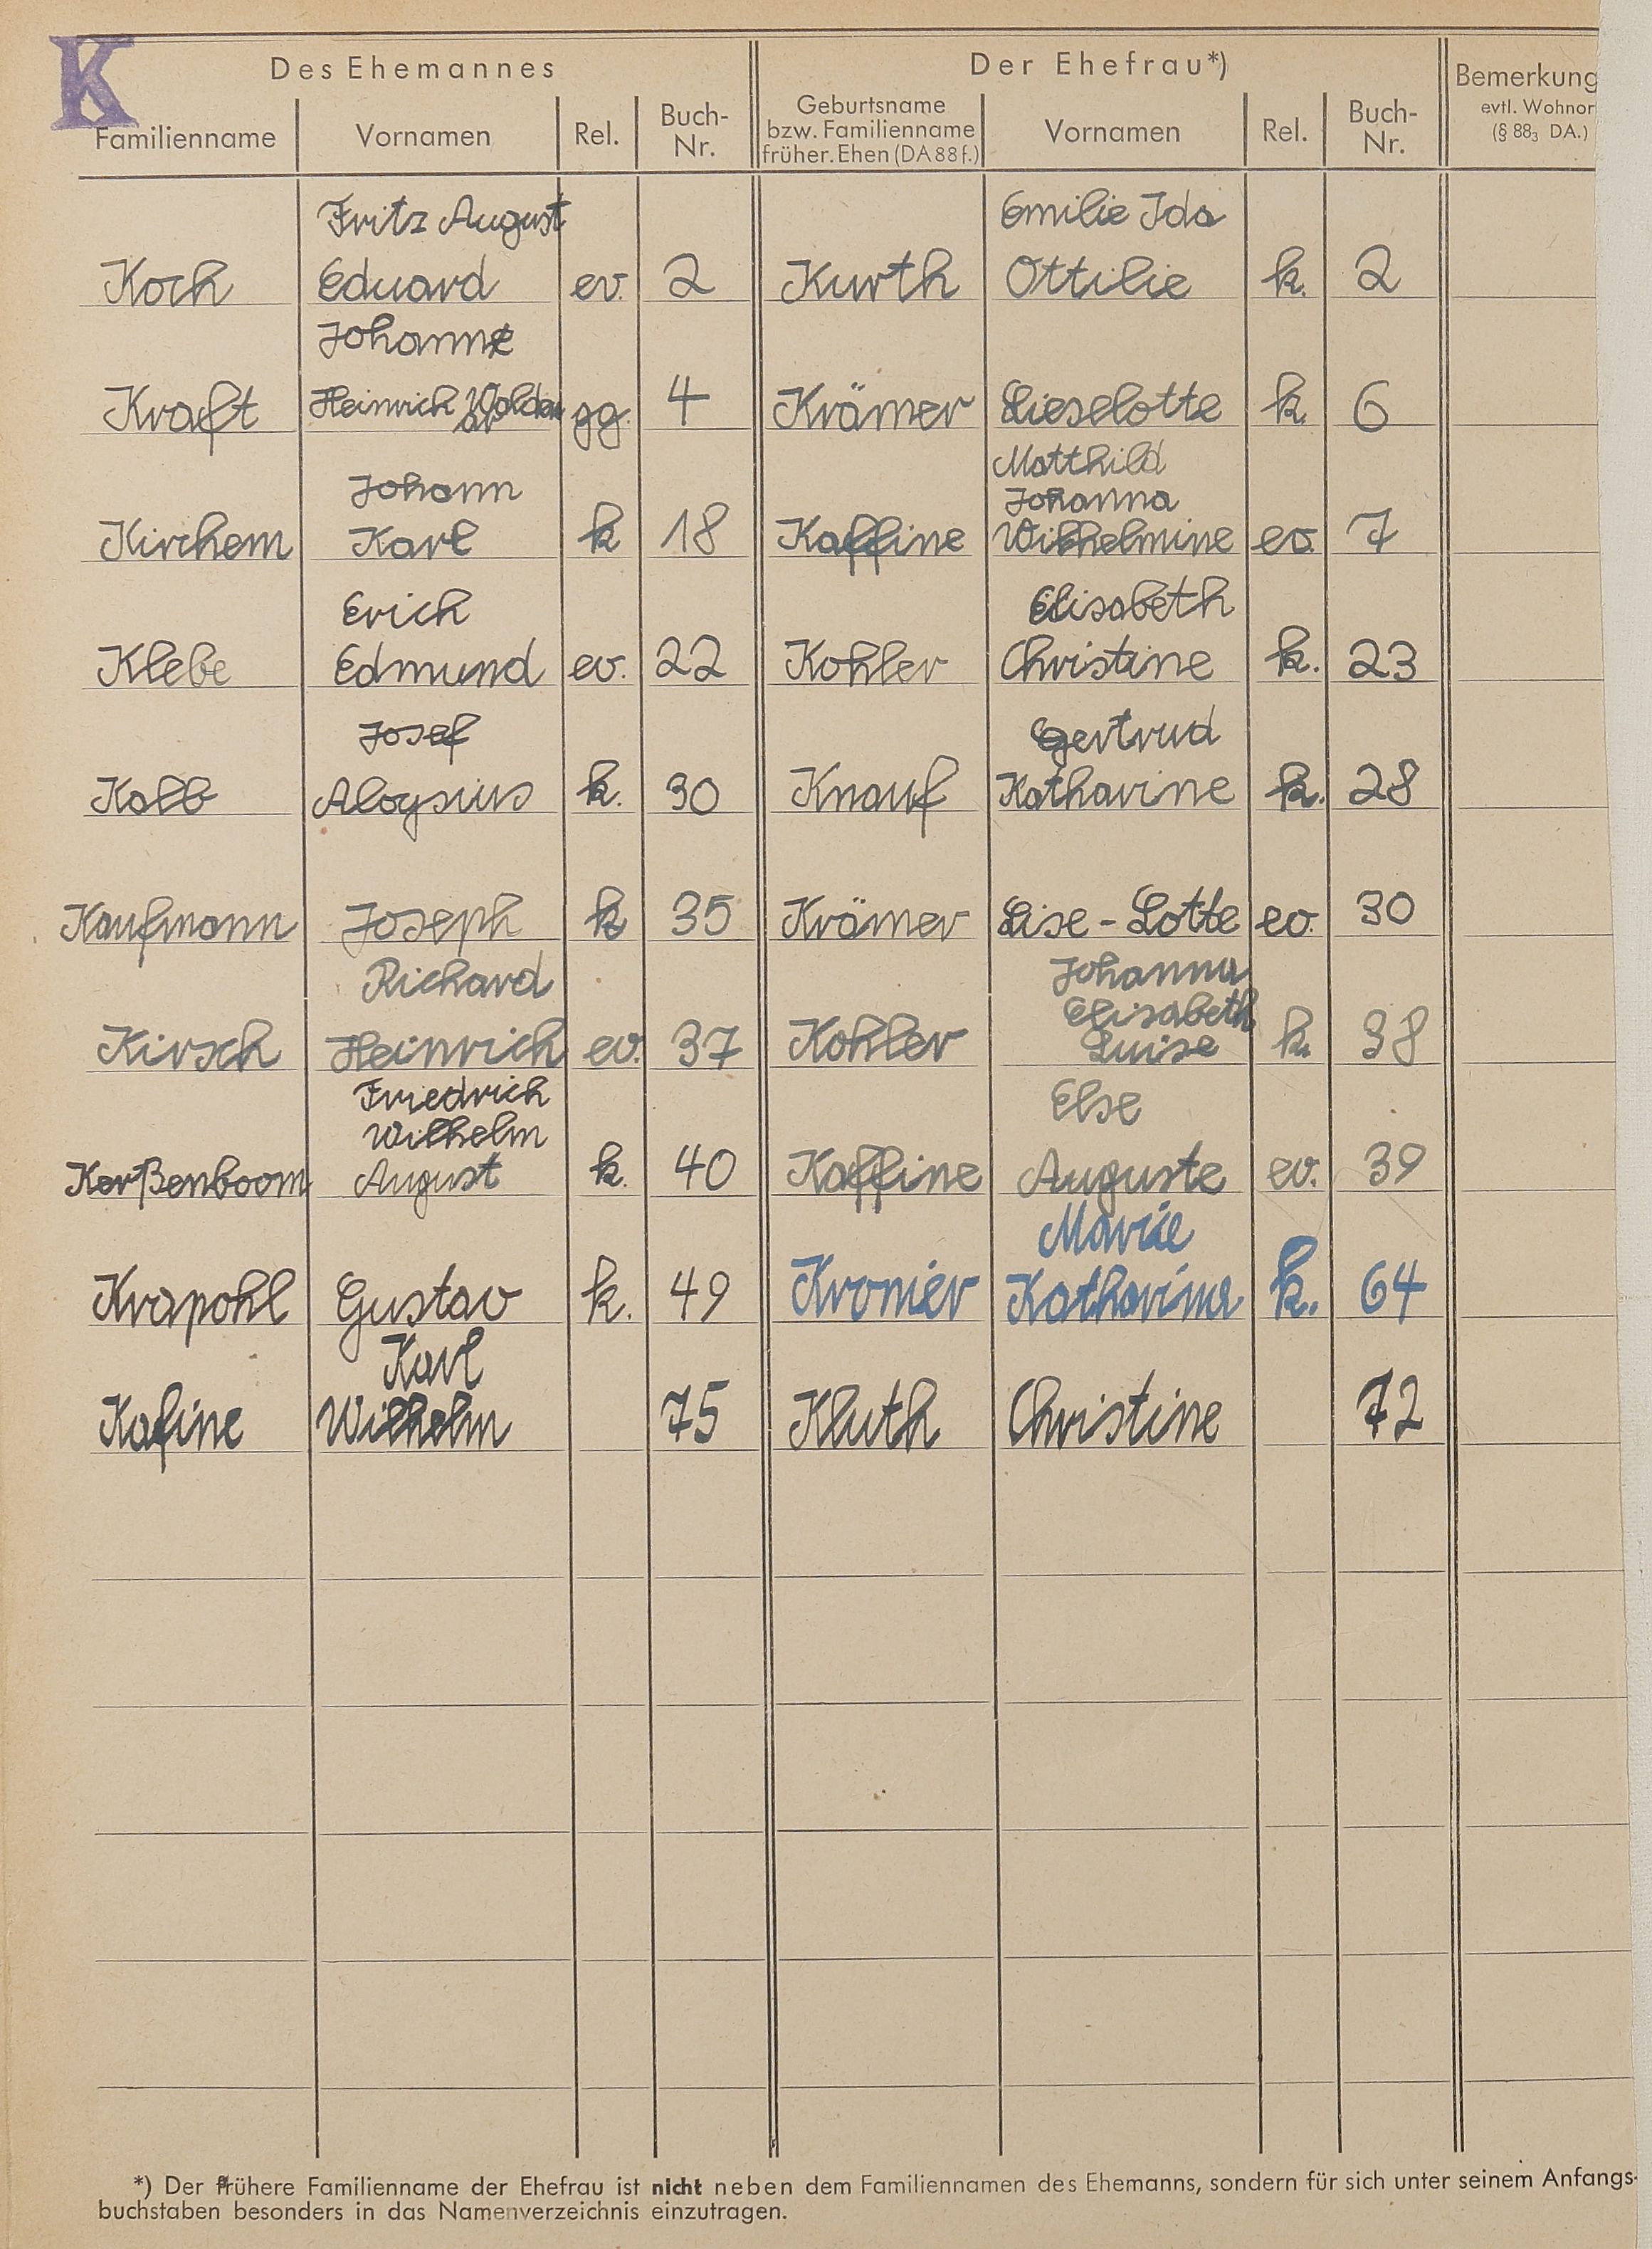 K
Des Ehemannes
Der Ehefrau*)
Familienname
Vornamen
Rel.
Buch-
Nr.
Geburtsname
bzw. Familienname
früher. Ehen (DA 88 f.)
Vornamen
Rel.
Buch-
Nr.
Bemerkung
evtl. Wohnor
(§ 88₃ DA.)
Fritz August Emilie Ida
Koch Eduard ev. 2 Kurth Ottilie k. 2
Johann
Kraft Heinrich Waldem gg. 4 Krämer Lieselotte k 6
ar
Matthild
Johann Johanna
Kirchem Karl k 18 Kaffine Wilhelmine ev. 7
Erich Elisabeth
Klebe Edmund ev. 22 Kohler Christine k. 23
Josef Gertrud
Kolb Aloysius k. 30 Knauf Katharine k. 28
Kaufmann Joseph k 35 Krämer Lise-Lotte ev. 30
Richard Johanna
Elisabeth
Kirsch Heinrich ev. 37 Kohler Luise k. 38
Friedrich Else
Wilhelm
Kerßenboom August k. 40 Kaffine Auguste ev. 39
Marie
Krapohl Gustav k. 49 Kronier Katharina k. 64
Karl
Kafine Wilhelm 75 Kluth Christine 72
*) Der frühere Familienname der Ehefrau ist nicht neben dem Familiennamen des Ehemanns, sondern für sich unter seinem Anfangs-
buchstaben besonders in das Namenverzeichnis einzutragen.